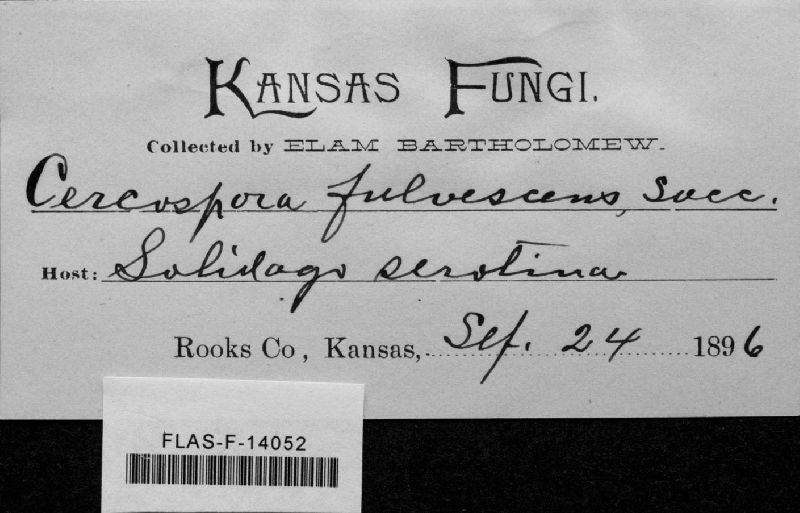 KANSAS FUNGI.
Collected by ELAM BARTHOLOMEW.
Cercospora fulvescens, Sacc.
Host: Solidago serotina
Rooks Co, Kansas, Sep. 24 1896
FLAS-F-14052